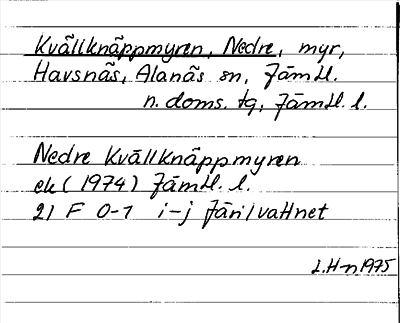 Kvällknäppmyren, Nedre, myr,
Havsnäs, Alanäs sn, Jämtl.
n. doms. tg, Jämtl. l.
Nedre Kvällknäppmyren
ek (1974) Jämtl. l.
21 F 0-1 i-j Järilvattnet
L.H-n 1975